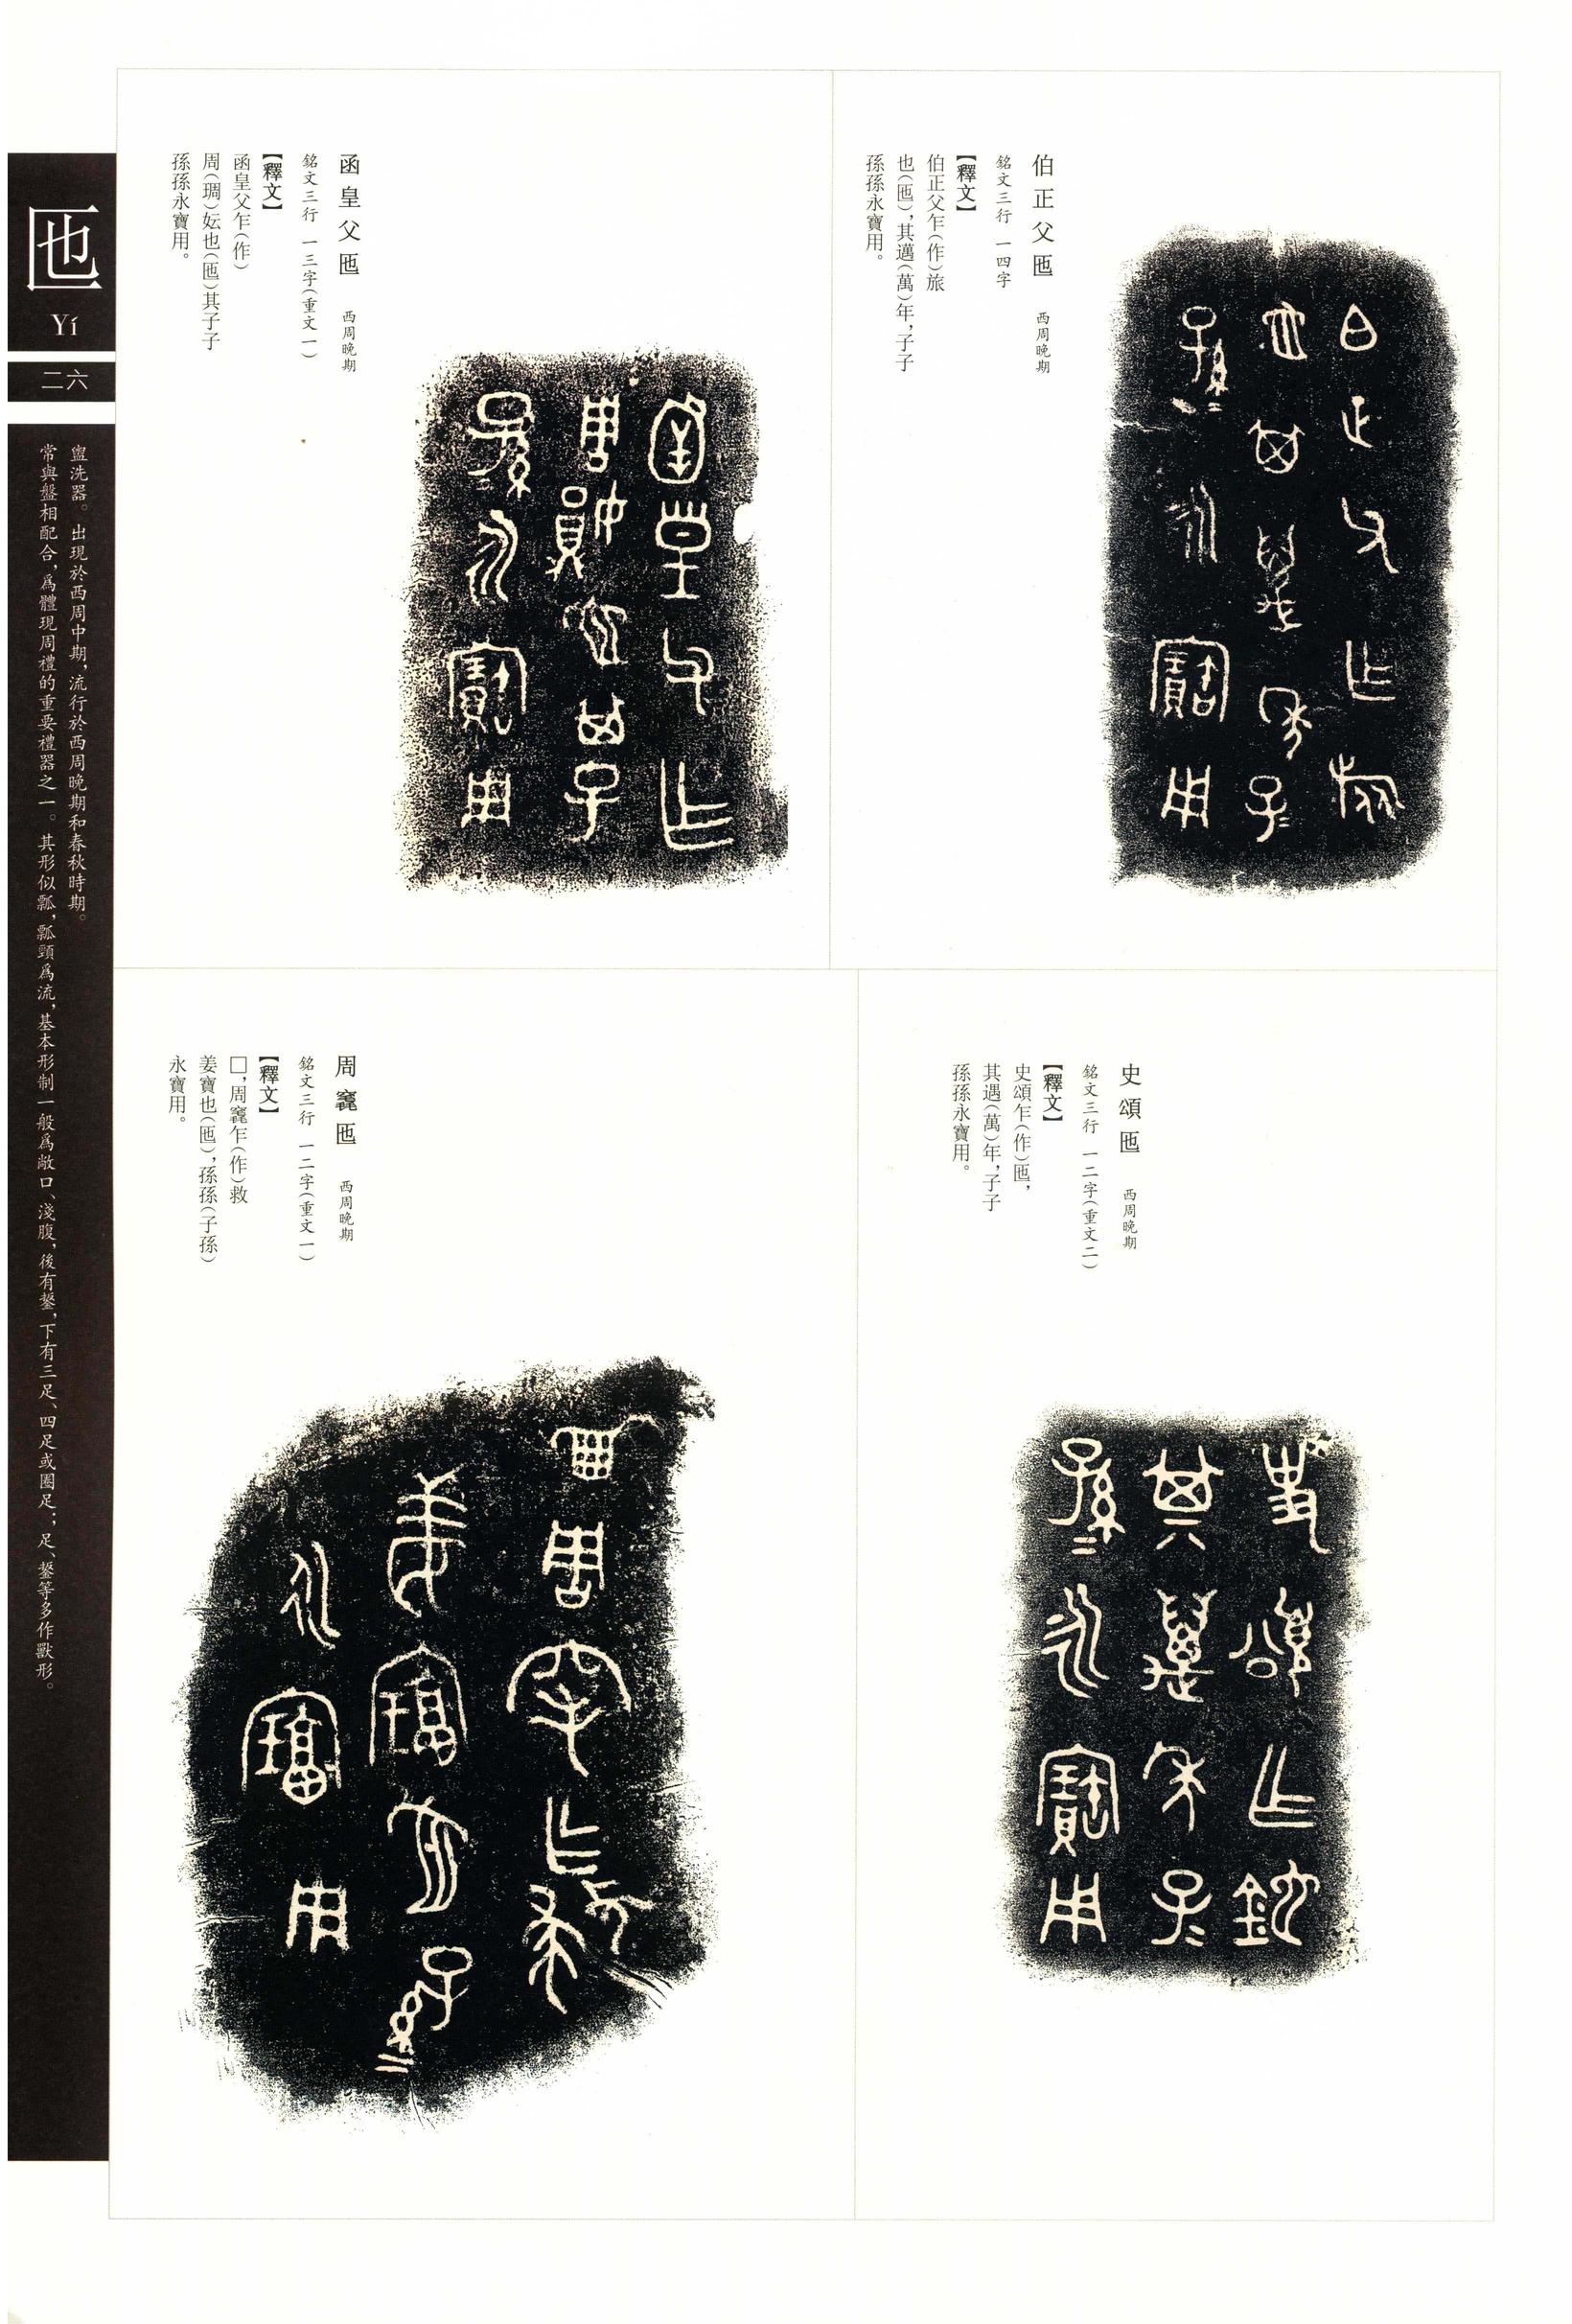 伯正父匜 西周晚期
銘文三行 一四字
【釋文】
伯正父乍（作）旅
也（匜），其邁（萬）年，子子
孫孫永寶用。
函皇父匜 西周晚期
銘文三行 一三字（重文一）
【釋文】
函皇父乍（作）
周（琱）妘也（匜）其子子
孫孫永寶用。
史頌匜 西周晚期
銘文三行 一二字（重文二）
【釋文】
史頌乍（作）匜，
其遇（萬）年，子子
孫孫永寶用。
周窶匜 西周晚期
銘文三行 一二字（重文一）
【釋文】
□，周乍（作）救
姜寶也（匜），孫孫（子孫）
永寶用。
匜
Yí
二六
盥洗器。出現於西周中期，流行於西周晚期和春秋時期。
常與盤相配合，爲體現周禮的重要禮器之一。其形似瓢，瓢頸爲流，基本形制一般爲敞口、淺腹，後有鋬，下有三足、四足或圈足；足、鋬等多作獸形。